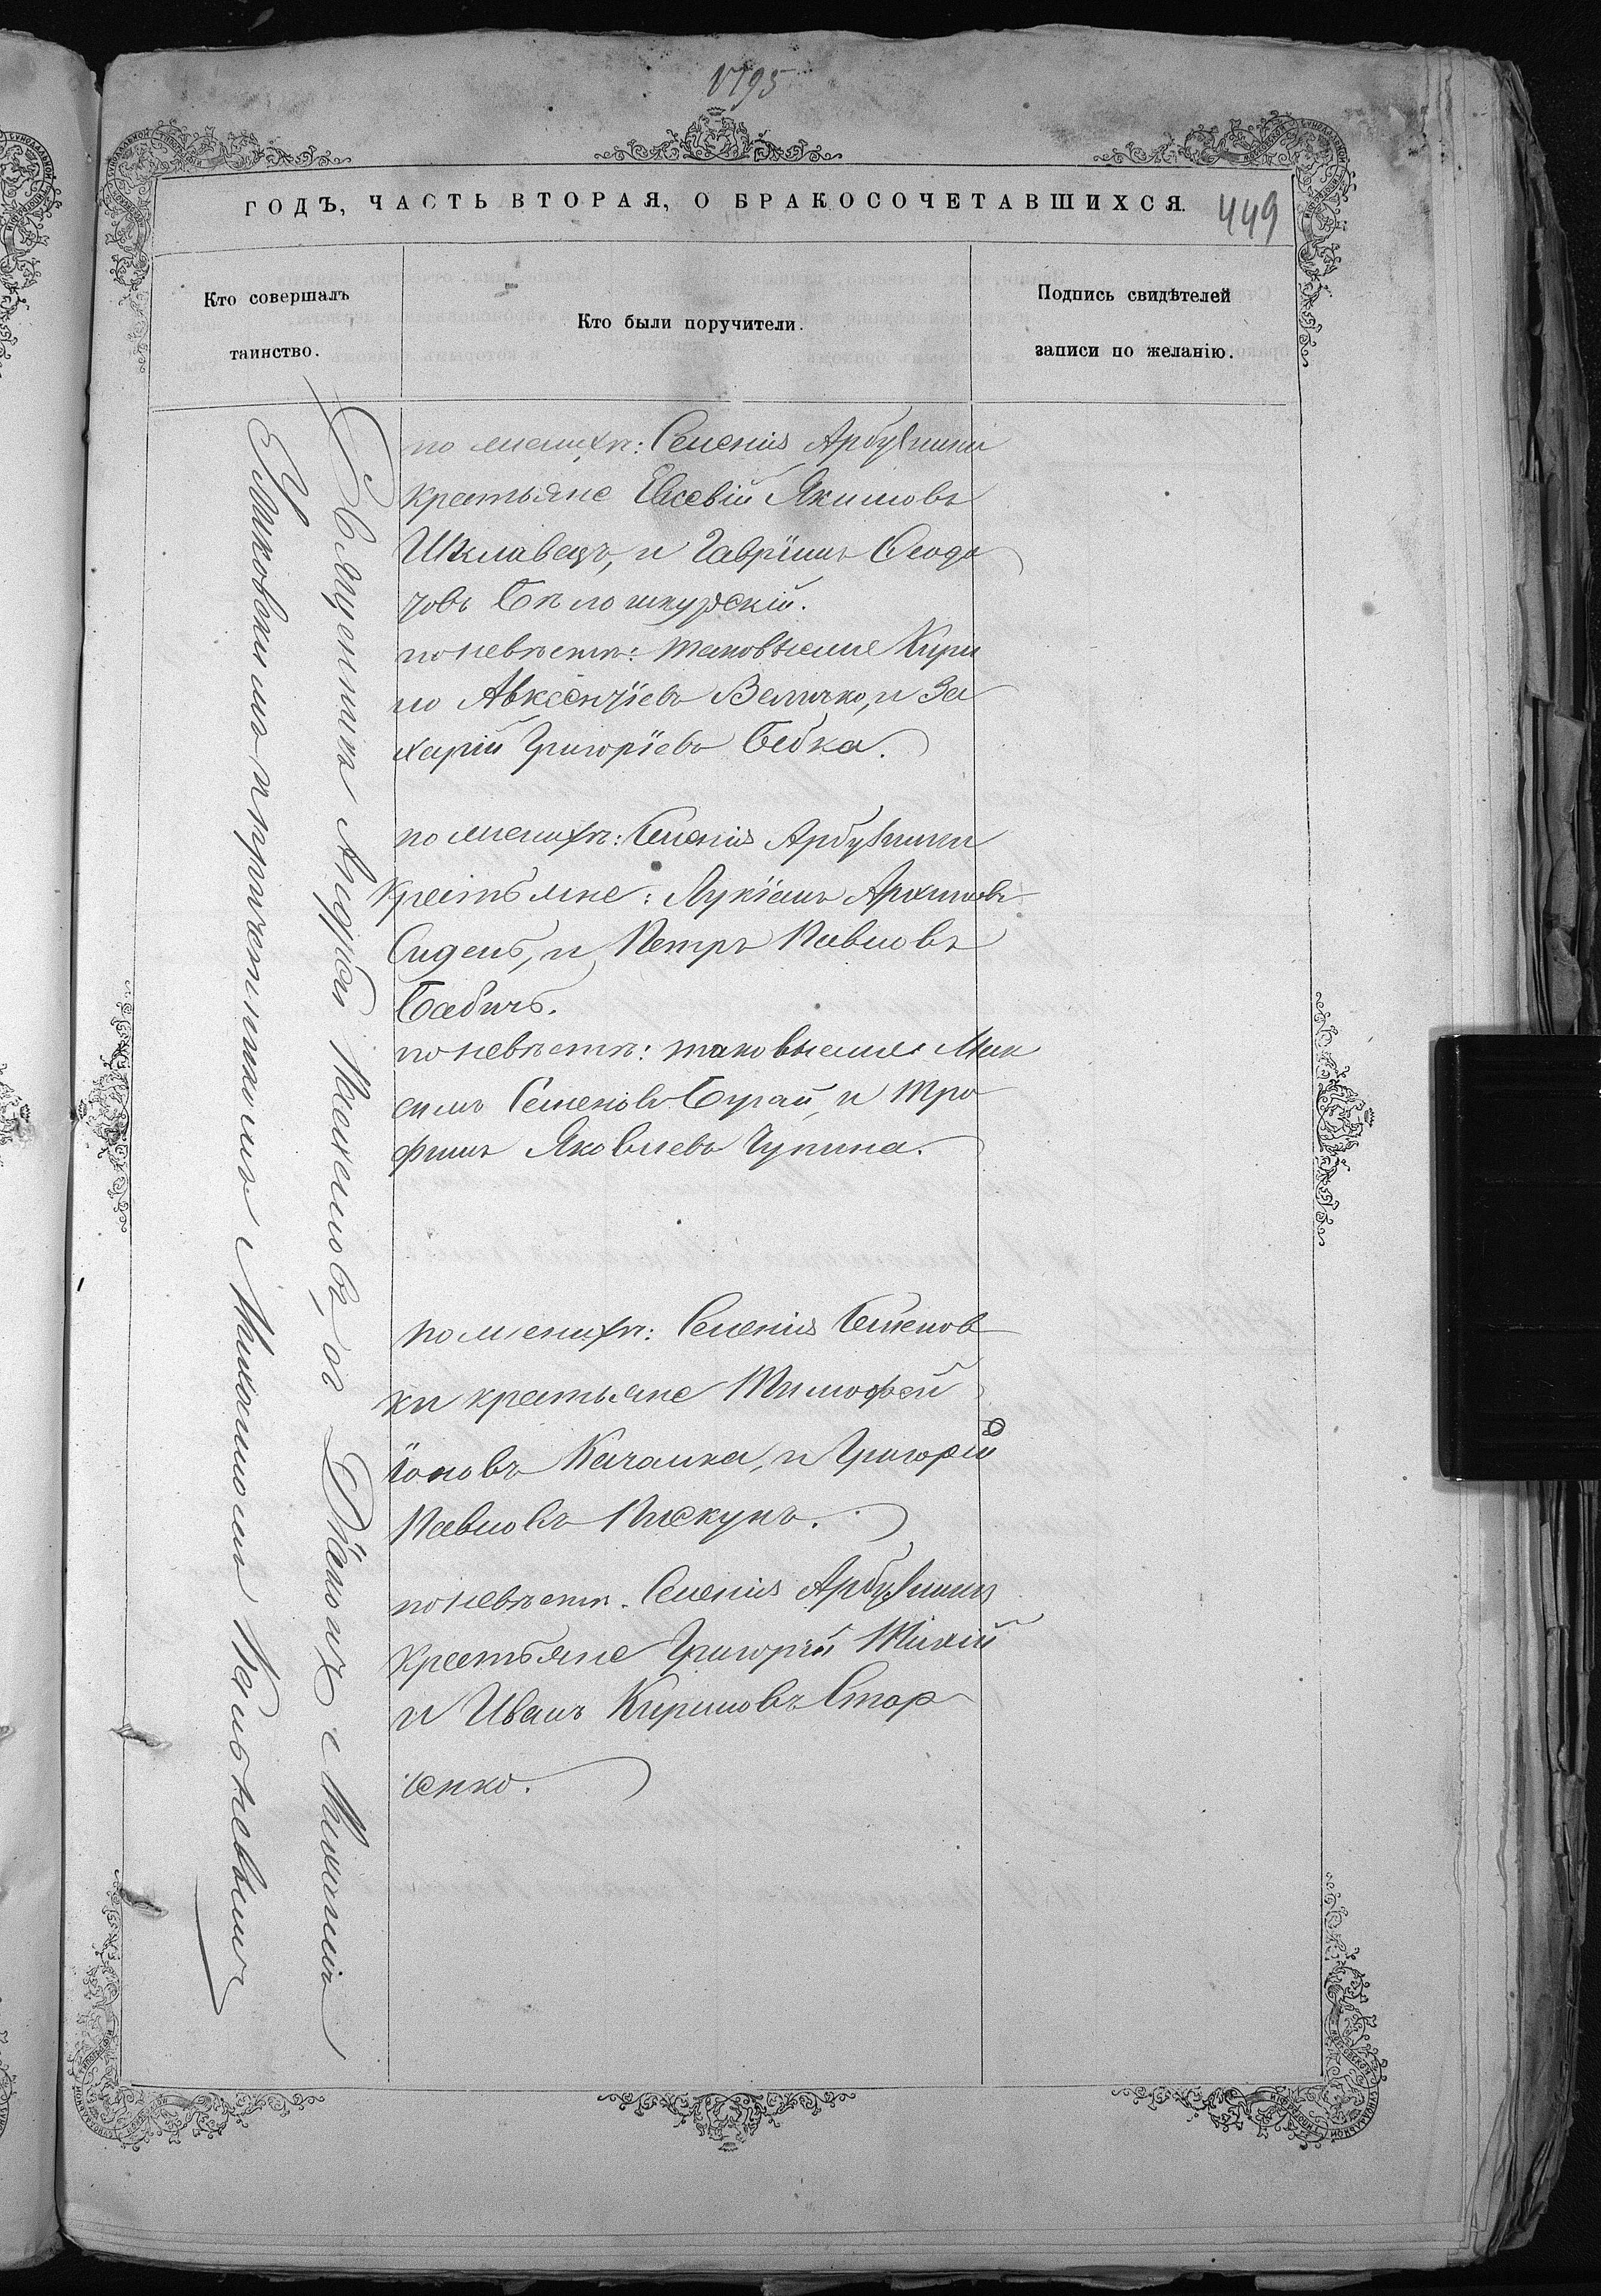 1795
ГОДЪ, ЧАСТЬ ВТОРАЯ, О БРАКОСОЧЕТАВШИХСЯ.
449
Кто совершалъ
таинство.
Кто были поручители.
Подпись свидѣтелей
записи по желанію.
Священникъ Андрей съ Діакономъ
и причетникомъ
по женихѣ: Селенія Арбузинки
крестьяне Евсевій Якимовъ
Шклавецъ, и Гавріилъ Ѳеодо
ровъ Бѣлошкурскій.
по невѣстѣ: таковыеже Кири
ло Авксентіевъ Величко, и За
харій Григоріевъ Бобка.
по женихѣ: Селенія Арбузинки
крестьяне: Лукіанъ Архиповъ
Сидень, и Петръ Павловъ
Бабичь.
по невѣстѣ: таковыеже Мак
симъ Семеновъ Бугай, и Тро
фимъ Яковлевъ Чупина.
по женихѣ: Селенія Семенов
ки крестьяне Тимофей
Іоновъ Качанка, и Григорій
Павловъ Пискунъ.
по невѣстѣ. Селенія Арбузинки
крестьяне Григорій Тихій
и Иванъ Кириловъ Стор
ченко.